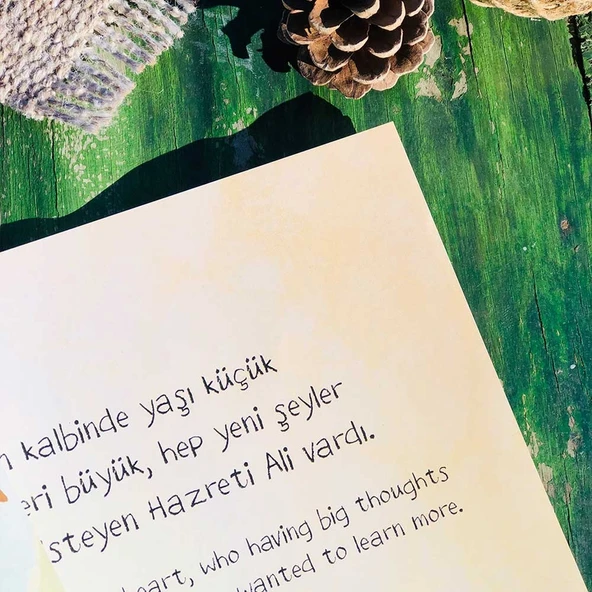 kalbinde yaşı küçük
büyük, hep yeni şeyler
steyen Hazreti Ali vardı.
heart, who having big thoughts
wanted to learn more.